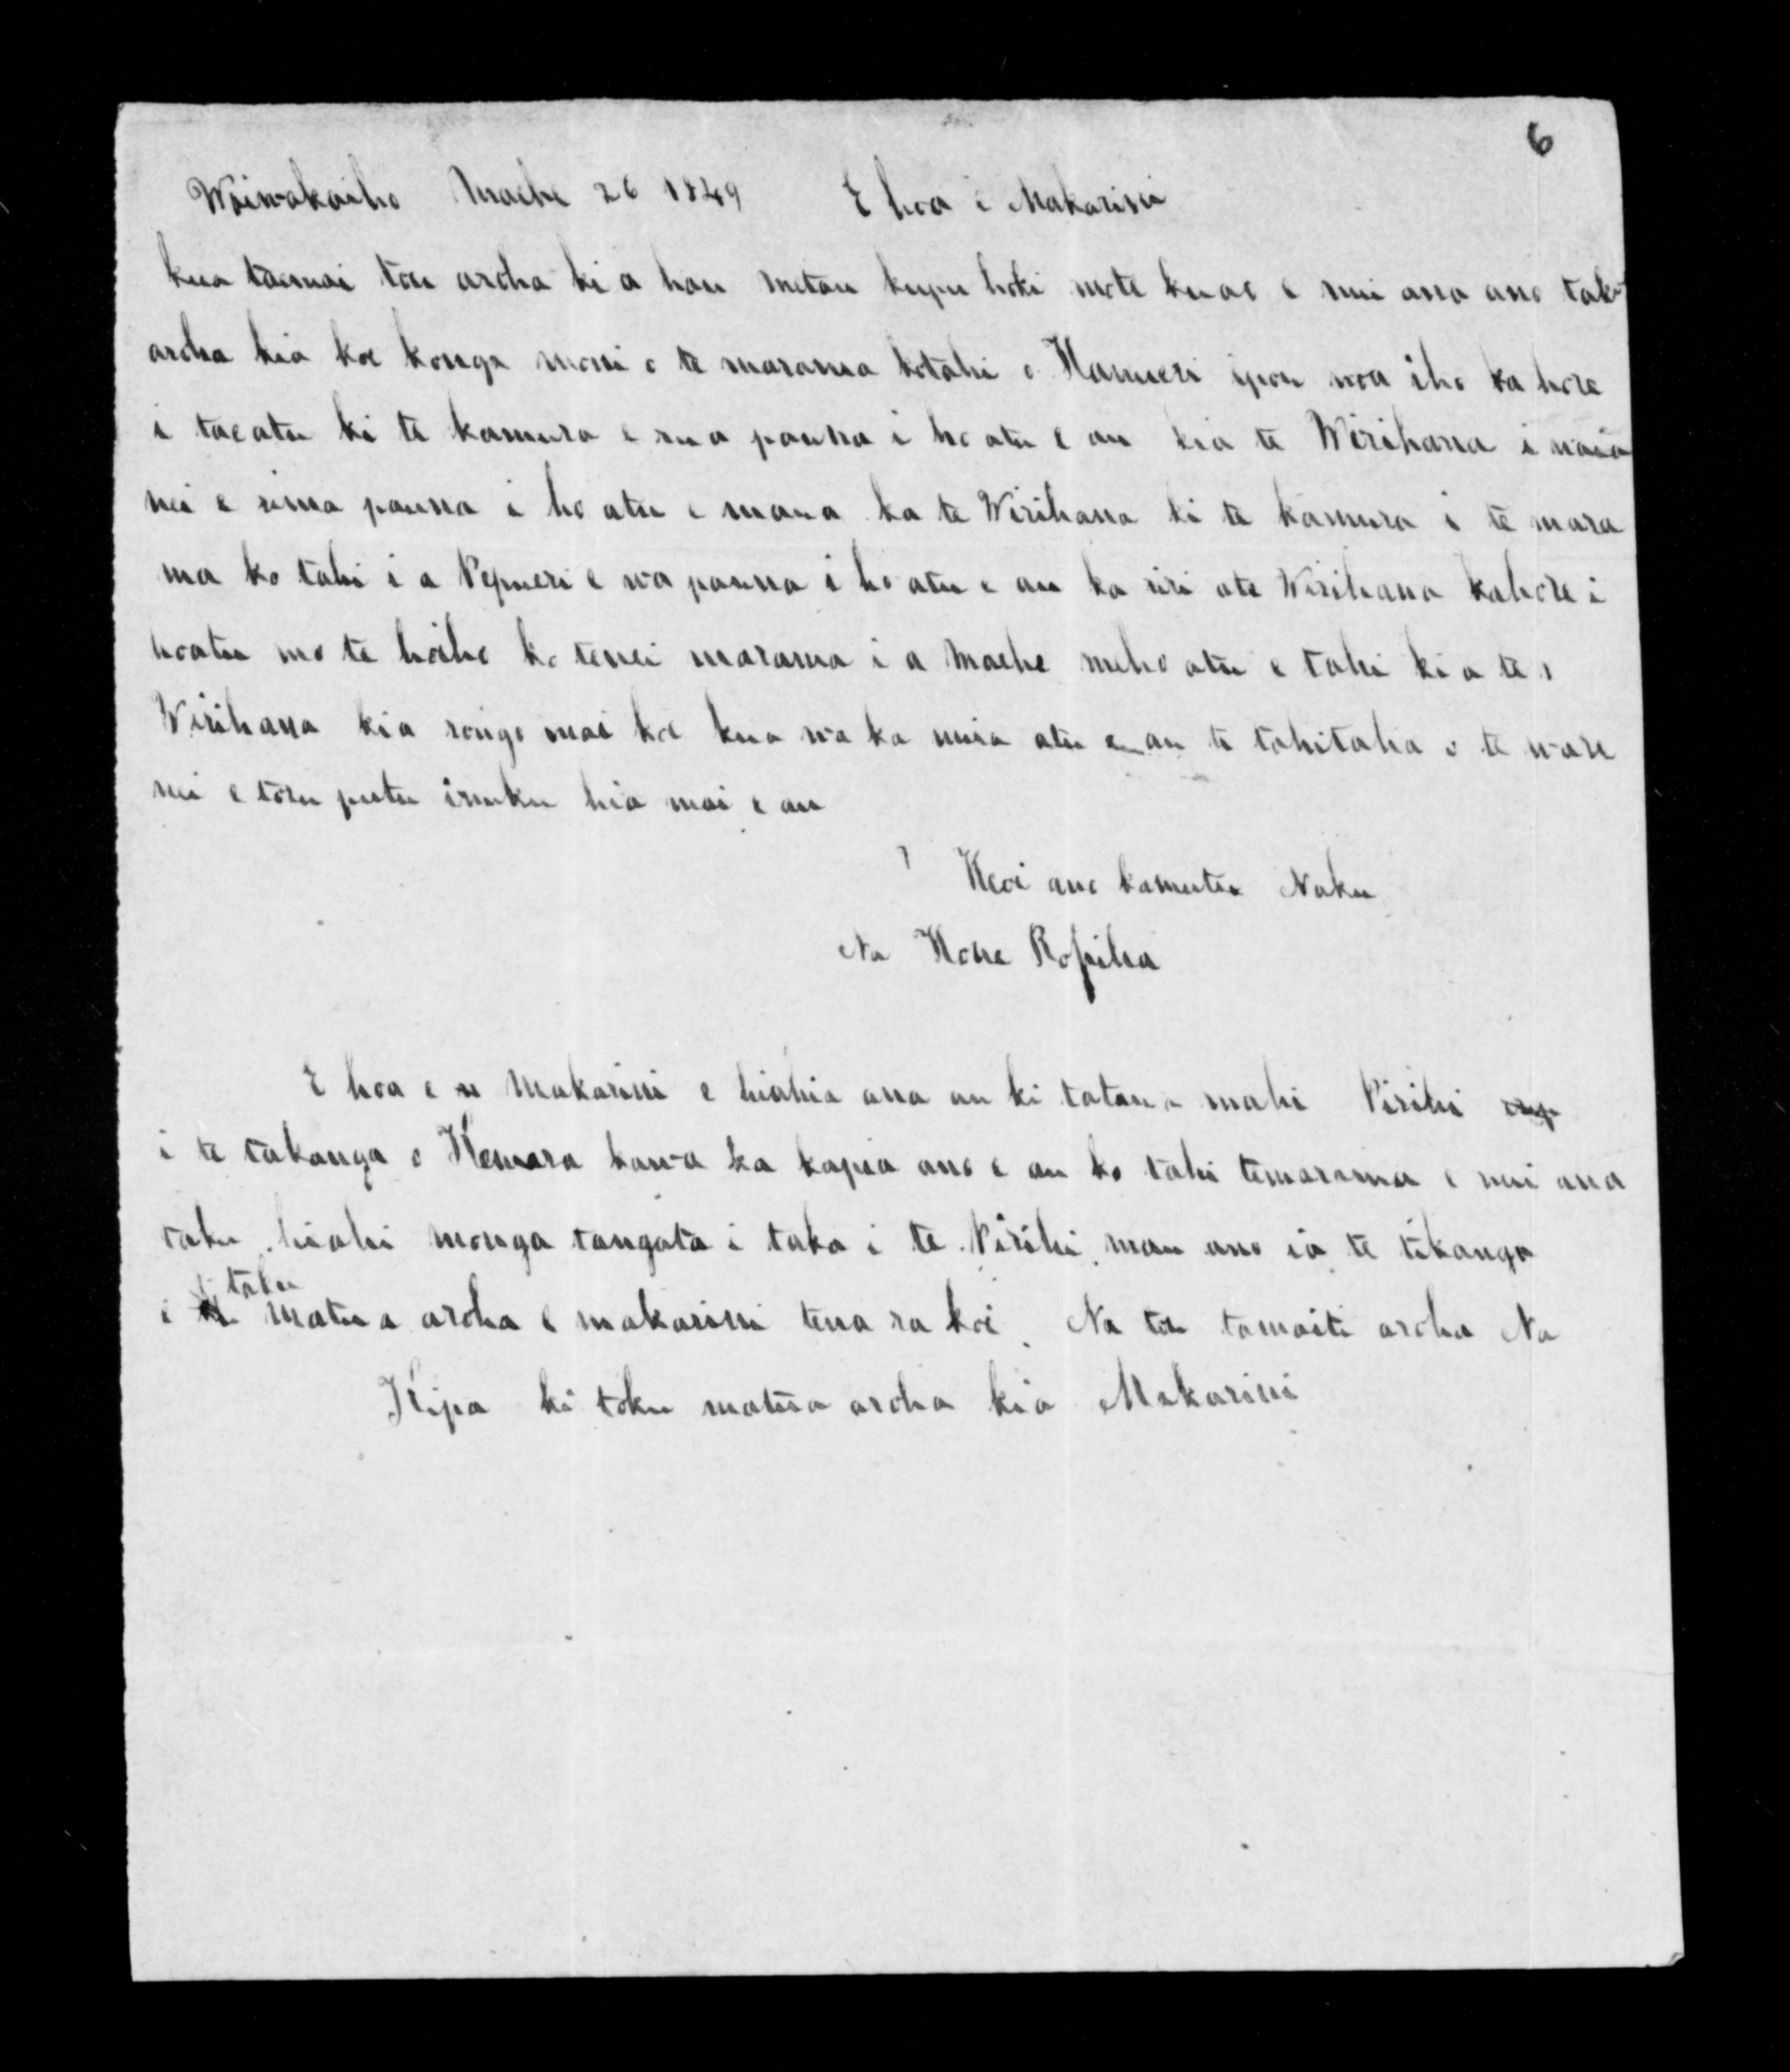 6
Waiwakaiho Maehe 26 1849 E hoa e Makarini
kua taemai tou aroha ki a hau metau kupu hoki mote kuao e nui ana ano taku
aroha kia koe konga moni o te marama kotahi o Hanueri ipou noa iho ka hore
i taeatu ki te kamura e rua pauna i ho atu e au kia te Wirihana i naia
nei e rima pauna i ho atu e maua ko te Wirihana ki te kamura i te mara
ma ko tahi i a Pepueri e wa pauna i ho atu e au ka riri ate Wirihana kahore i
hoatu mo te hoiho ko tenei marama i a Maehe meho atu e tahi ki a te
Wirihana kia rongo mai koe kua wa ka nuia atu e au te tahitaha o te ware
nei e toru putu iruku hia mai e au
Heoi ano kamutu Naku
Na Hone Ropiha
E hoa e Makarini e hiahia ana au ki tatau mahi Pirihi
i te takanga o Hemara kawa ka kapea ano e au ko tahi temarama e nui ana
taku hiahi monga tangata i taka i te Pirihi mau ano ia te tikanga
i taku matua aroha e makarini tena ra koe Na tou tamaiti aroha Na
Kipa ki toku matua aroha kia Makarini